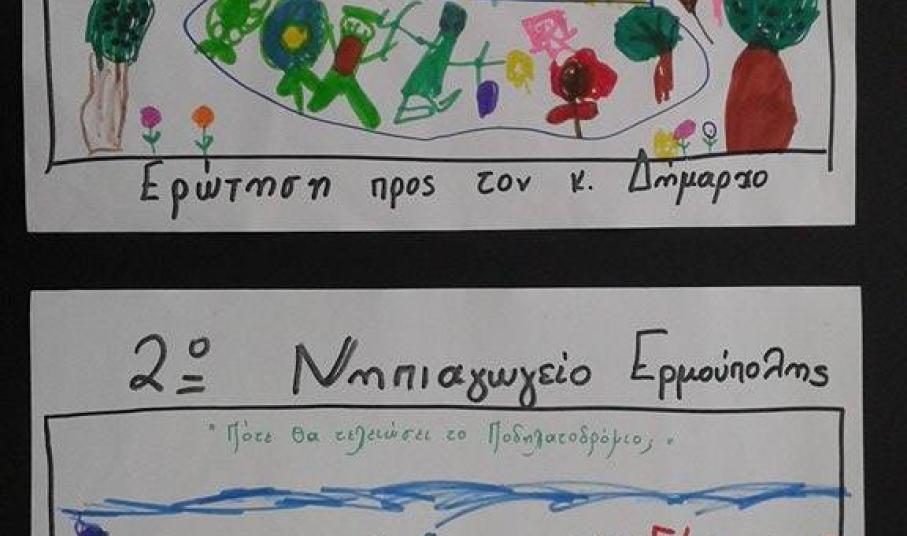 Ερώτηση προς τον κ. Δήμαρχο
2º Νηπιαγωγείο Ερμούπολης
"Πότε θα τελειώσει το Ποδηλατοδρόμιο; "